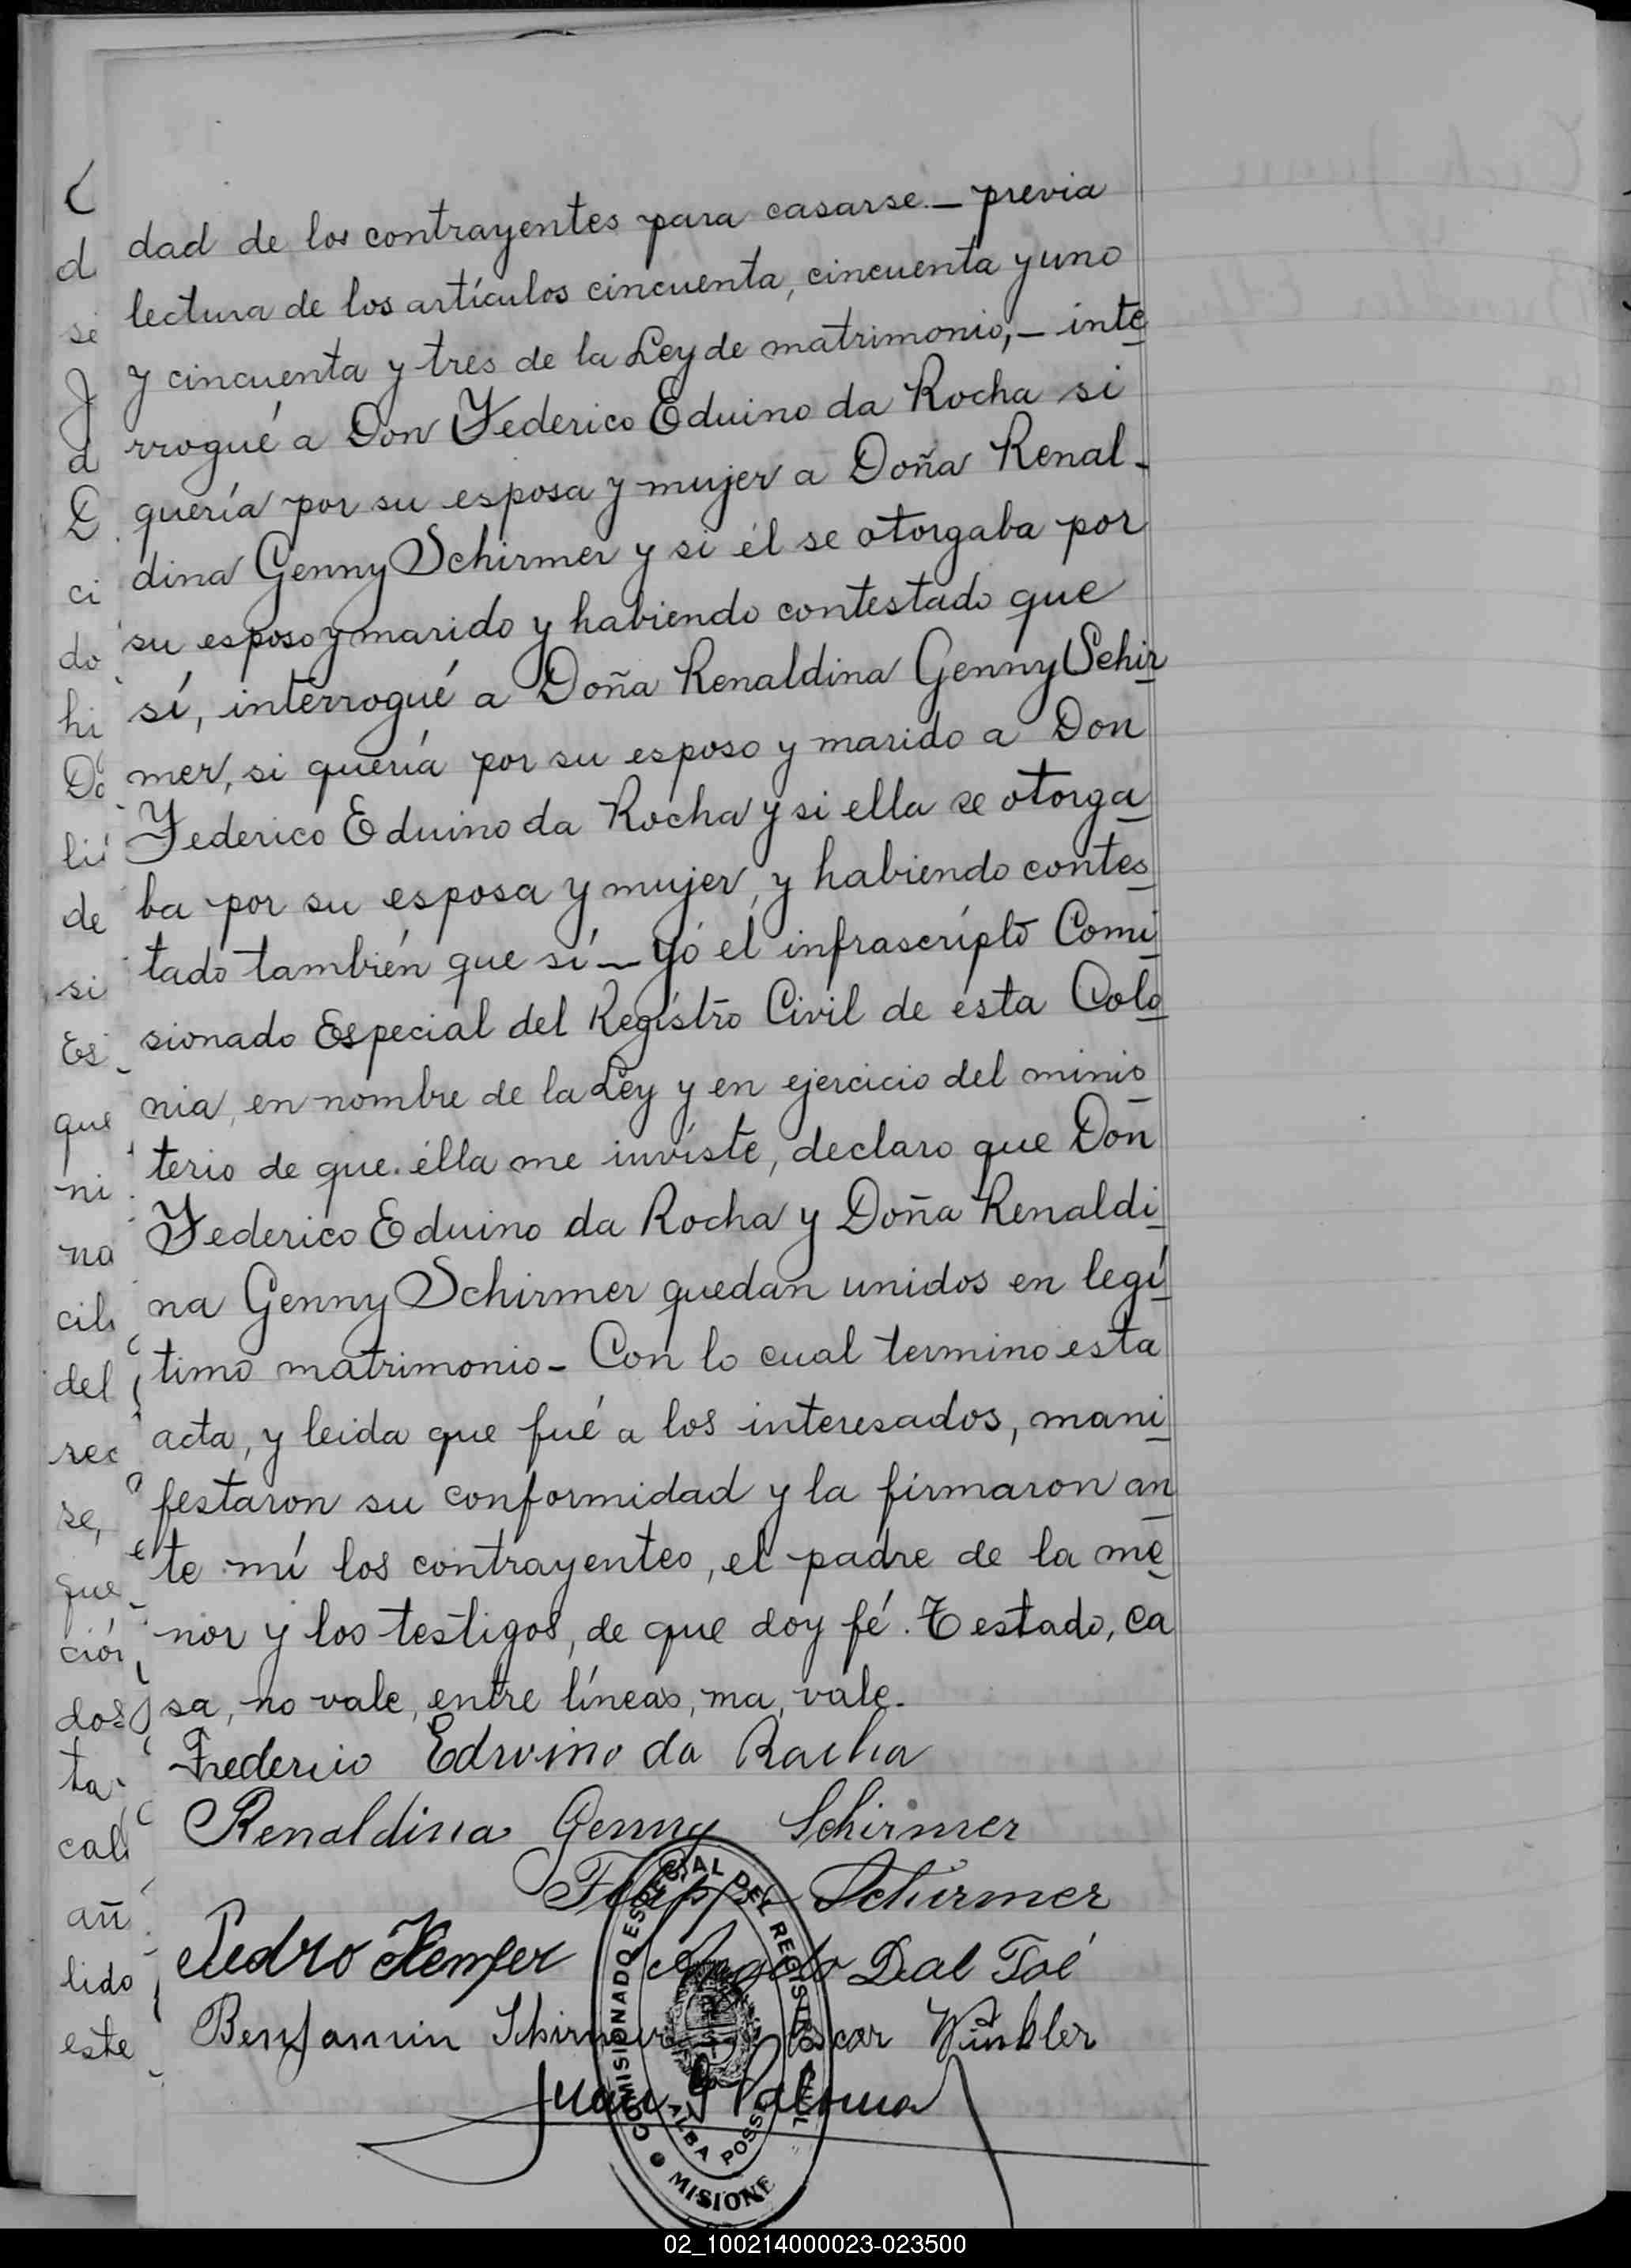 dad de los contrayentes para casarse.— previa
lectura de los artículos cincuenta, cincuenta y uno
y cincuenta y tres de la Ley de matrimonio,— inte
rrogué a Don Federico Eduino da Rocha si
quería por su esposa y mujer a Doña Renal-
dina Genny Schirmer y si él se otorgaba por
su esposo y marido y habiendo contestado que
sí, interrogué a Doña Renaldina Genny Schir
mer, si quería por su esposo y marido a Don
Federico Eduino da Rocha y si ella se otorga
ba por su esposa y mujer, y habiendo contes
tado también que sí — Yó el infrascripto Comi
sionado Especial del Registro Civil de esta Colo
nia, en nombre de la Ley y en ejercicio del minis
terio de que élla me inviste, declaro que Don
Federico Eduino da Rocha y Doña Renaldi
na Genny Schirmer quedan unidos en legí
timo matrimonio- Con lo cual termino esta
acta, y leida que fué a los interesados, mani
festaron su conformidad y la firmaron an
te mí los contrayentes, el padre de la me
nor y los testigos, de que doy fé. Testado, ca
sa, no vale, entre líneas, ma, vale.
Frederico Edvino da Racha
Renaldina Genny Schirmer
Schirmer
Pedro Kemfer Angelo Dal Toé
Benjamin Schirmer Oscar Winkler
Juan Paloma
COMISIONADO ESPECIAL DEL REGISTRO CIVIL
ALBA POSSE
MISIONE
02_100214000023-023500